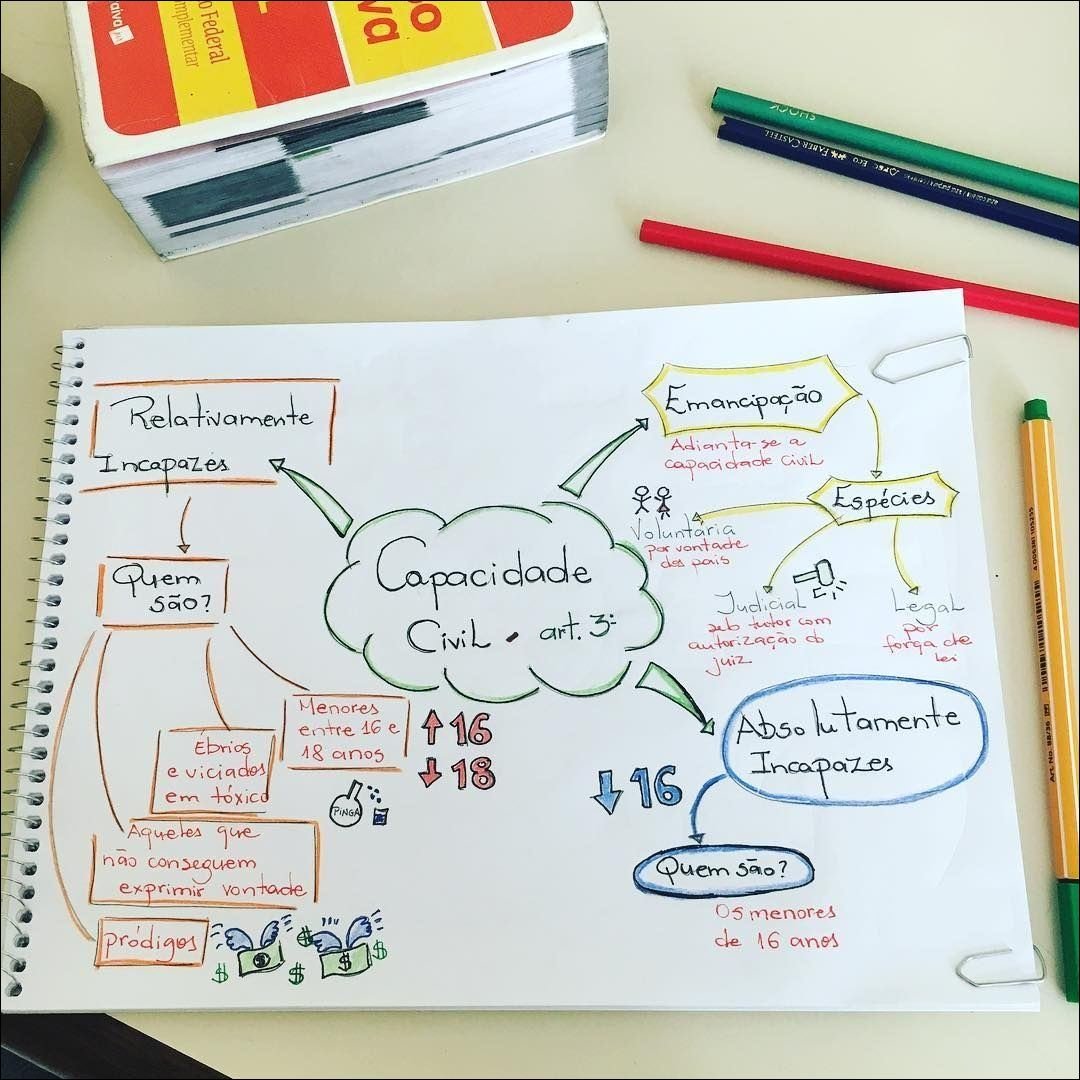 aiva jur
o Federal
mplementar
po
va
SHOCK
FABER CASTELL
Relativamente
Incapazes
Quem
são?
Menores
entre 16 e
18 anos
16
18
Ébrios
e viciados
em tóxico
PINGA
Aqueles que
não conseguem
exprimir vontade
pródigos
$ $ $ $ $ $
Capacidade
Civil - art. 3º
Emancipação
Adianta-se a
capacidade civil
Espécies
Voluntária
por vontade
dos pais
Judicial
sob tutor com
autorização do
juiz
Legal
por
força de
lei
Absolutamente
Incapazes
16
Quem são?
Os menores
de 16 anos
Art No 88/36